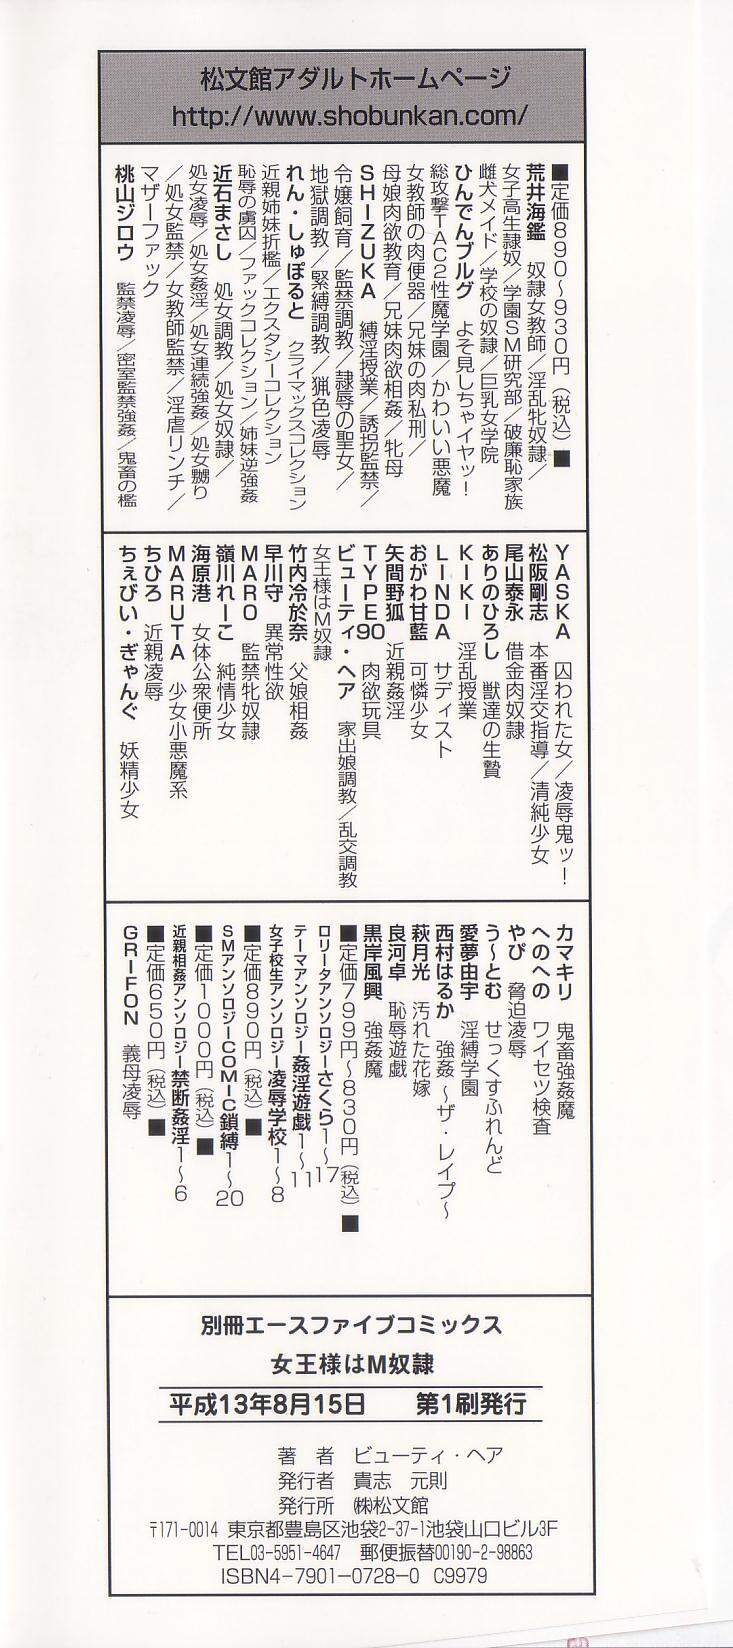 松文館アダルトホームページ
http://www.shobunkan.com/
■定価890〜930円（税込）■
荒井海鑑　奴隷女教師／淫乱牝奴隷／
女子高生隷奴／学園SM研究部／破廉恥家族
雌犬メイド／学校の奴隷／巨乳女学院
ひんでんブルグ　よそ見しちゃイヤッ！
総攻撃TAC2性魔学園／かわいい悪魔
女教師の肉便器／兄妹の肉私刑／
母娘肉欲教育／兄妹肉欲相姦／牝母
SHIZUKA　縛淫授業／誘拐監禁／
令嬢飼育／監禁調教／隷辱の聖女／
地獄調教／緊縛調教／猟色凌辱
れん・しゅぽると　クライマックスコレクション
近親姉妹折檻／エクスタシーコレクション
恥辱の虜囚／ファックコレクション／姉妹逆強姦
近石まさし　処女調教／処女奴隷／
処女凌辱／処女姦淫／処女連続強姦／処女嬲り
／処女監禁／女教師監禁／淫虐リンチ／
マザーファック
桃山ジロウ　監禁凌辱／密室監禁強姦／鬼畜の檻
YASKA　囚われた女／凌辱鬼ッ！
松阪剛志　本番淫交指導／清純少女
尾山泰永　借金肉奴隷
ありのひろし　獣達の生贄
KIKI　淫乱授業
LINDA　サディスト
おがわ甘藍　可憐少女
矢間野狐　近親姦淫
TYPE90　肉欲玩具
ビューティ・ヘア　家出娘調教／乱交調教
女王様はM奴隷
竹内冷於奈　父娘相姦
早川守　異常性欲
MARO　監禁牝奴隷
嶺川れーこ　純情少女
海原港　女体公衆便所
MARUTA　少女小悪魔系
ちひろ　近親凌辱
ちぇびい・ぎゃんぐ　妖精少女
カマキリ　鬼畜強姦魔
へのへの　ワイセツ検査
やぴ　脅迫凌辱
う〜とむ　せっくすふれんど
愛夢由宇　淫縛学園
西村はるか　強姦〜ザ・レイプ〜
萩月光　汚れた花嫁
良河卓　恥辱遊戯
黒岸風興　強姦魔
■定価799円〜830円（税込）■
ロリータアンソロジーさくら1〜17
テーマアンソロジー姦淫遊戯1〜11
女子校生アンソロジー凌辱学校1〜8
■定価890円（税込）■
SMアンソロジーCOMIC鎖縛1〜20
■定価1000円（税込）■
近親相姦アンソロジー禁断姦淫1〜6
■定価650円（税込）■
GRIFON　義母凌辱
別冊エースファイブコミックス
女王様はM奴隷
平成13年8月15日　第1刷発行
著　者　ビューティ・ヘア
発行者　貴志　元則
発行所　㈱松文館
〒171-0014　東京都豊島区池袋2-37-1池袋山口ビル3F
TEL03-5951-4647　郵便振替00190-2-98863
ISBN4-7901-0728-0　C9979